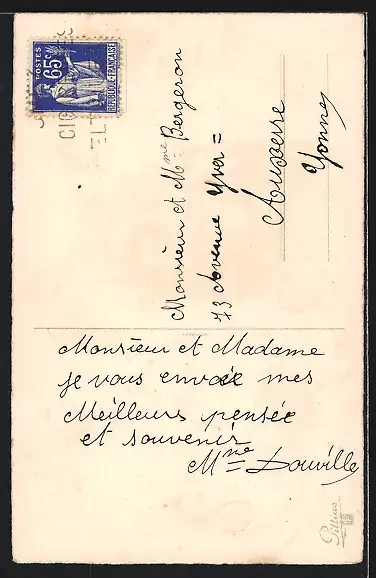 POSTES
65c
REPUBLIQUE FRANCAISE
Monsieur et Mme Bergeron
73 Avenue Yver =
Auxerre
Yonne
Monsieur et Madame
je vous envoie mes
Meilleurs pensée
et souvenir
Mme = Douville